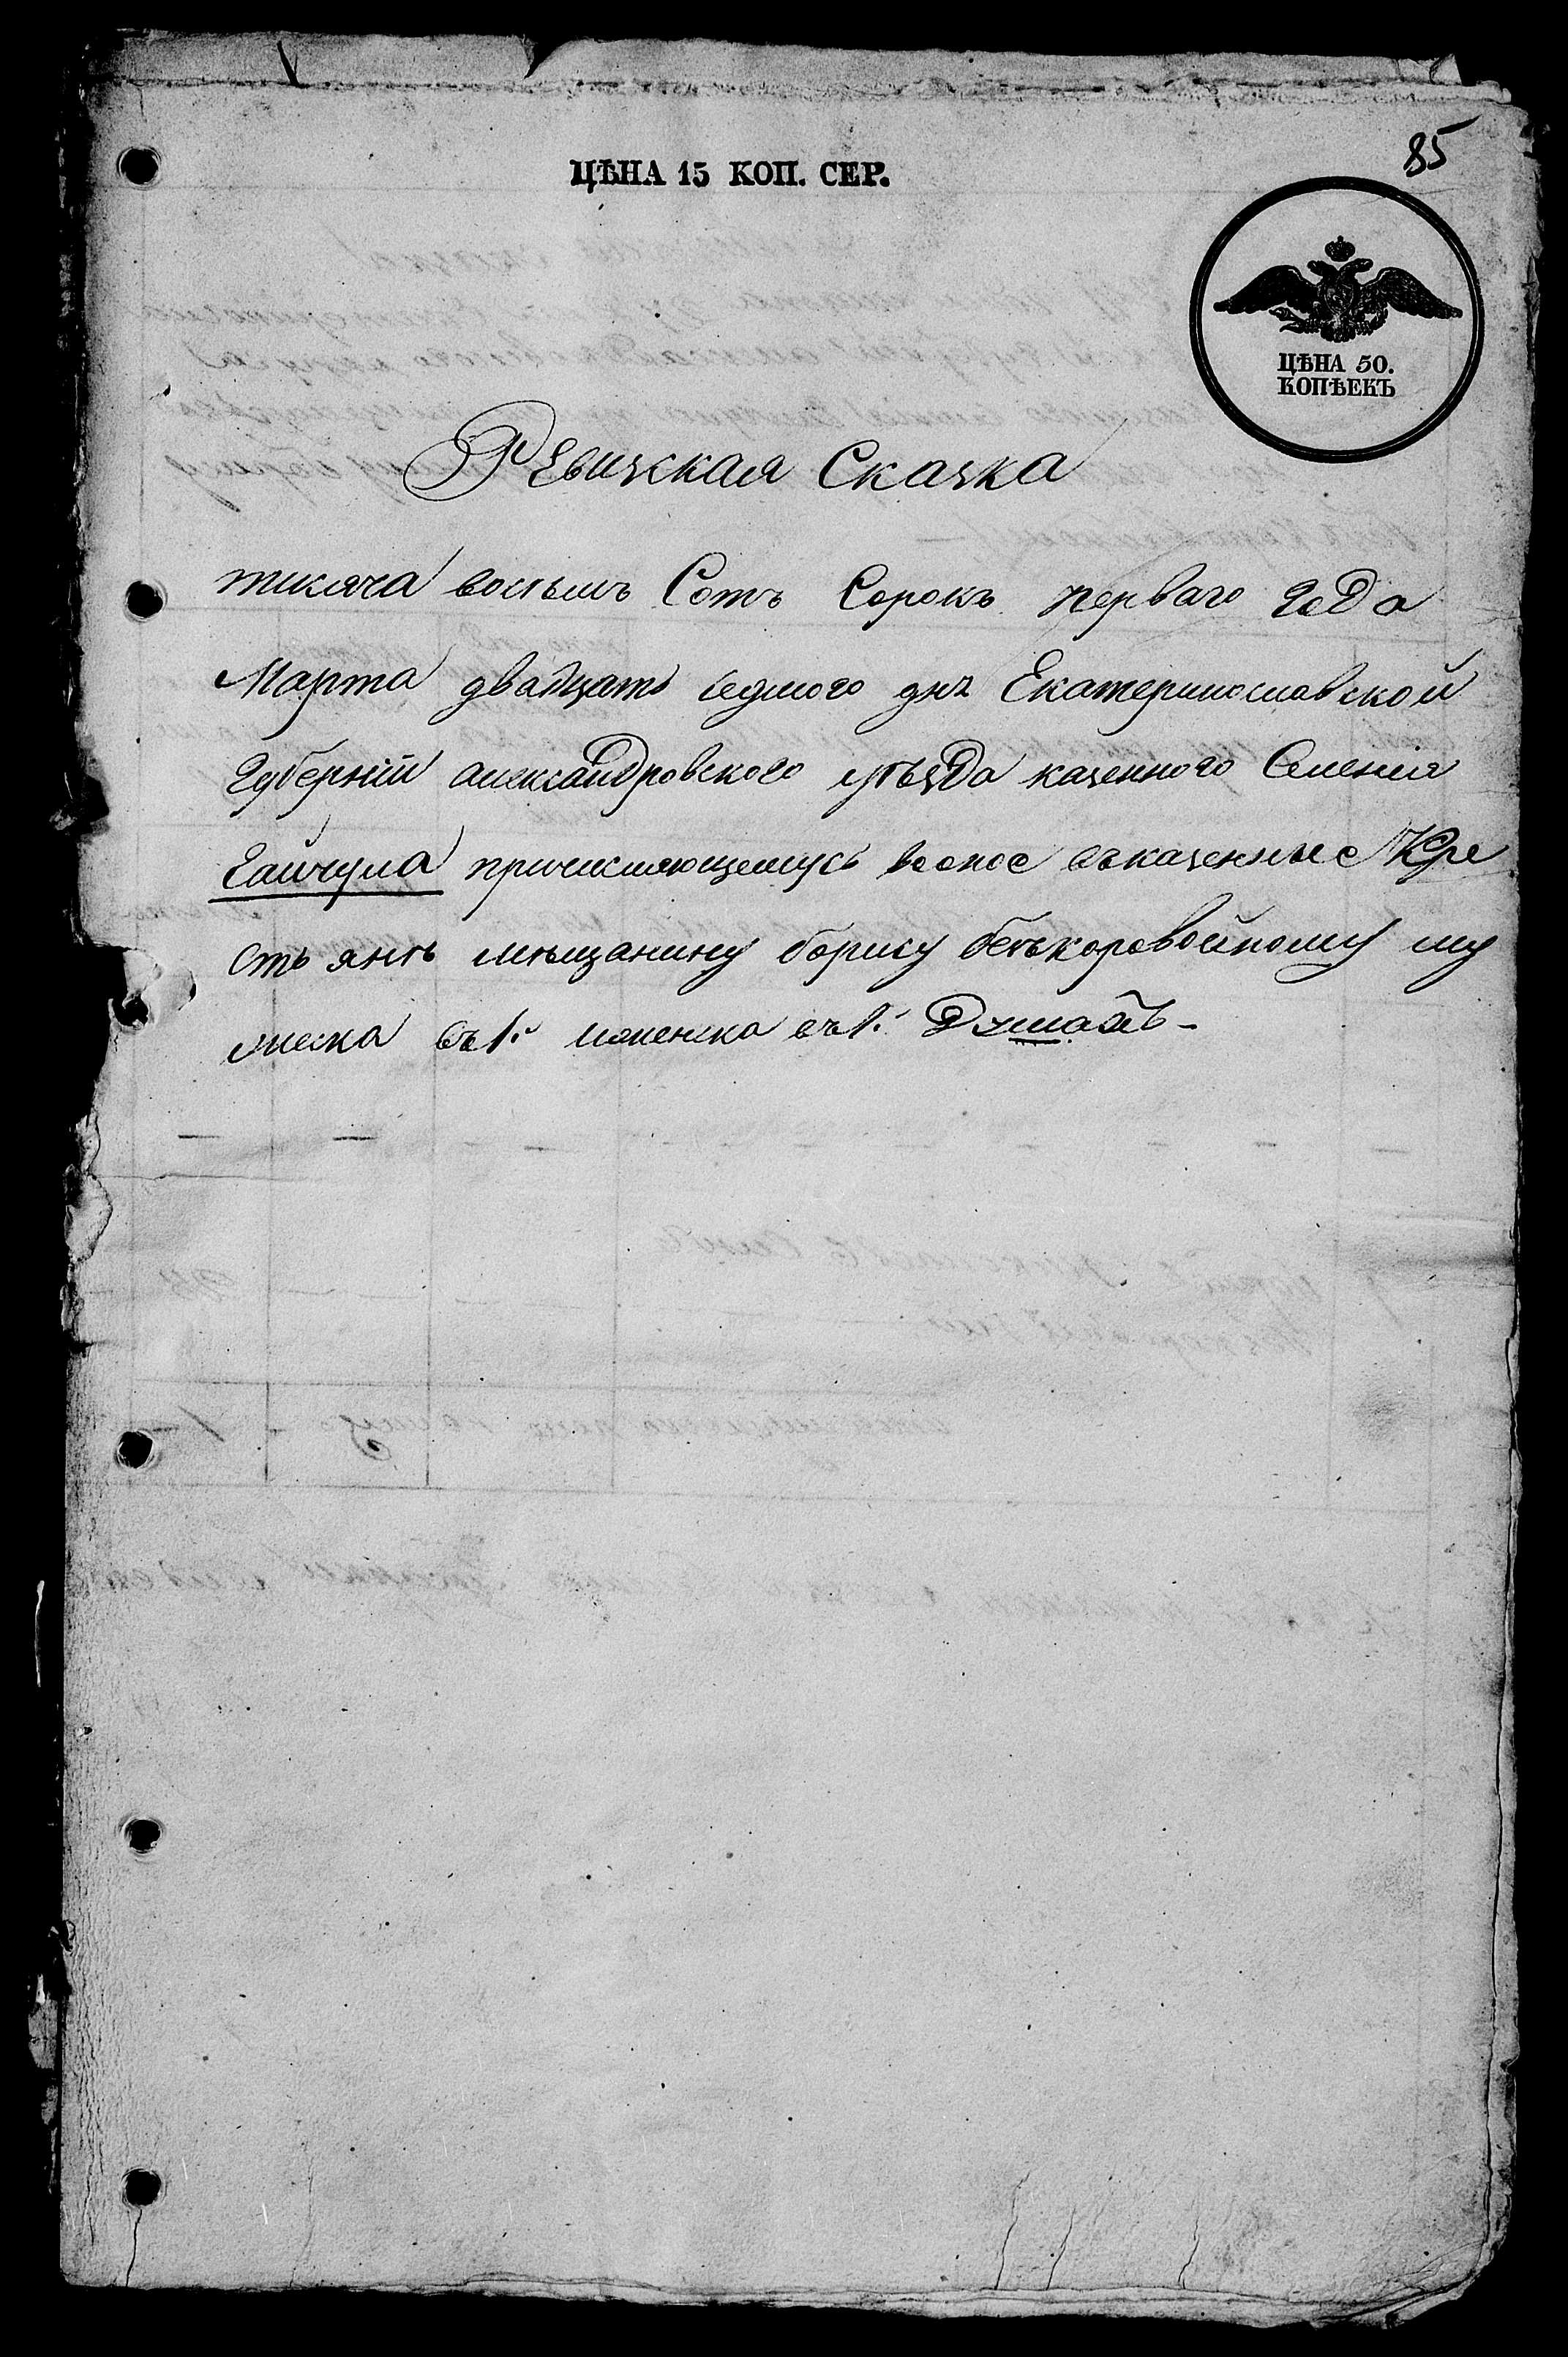 85
ЦѢНА 15 КОП. СЕР.
ЦѢНА 50.
КОПѢЕКЪ
Ревизкая Сказка
тисяча восьемъ Сотъ Сорокъ перваго года
Марта двадцать седмого дня Екатеринославской
Губерніи александровского уѣзда казенного Селенія
Гайчула причисляющемусь вооное въказенные Кре
стьянъ мѣщанину борису безъкоровойному му
жеска въ1. женска въ1. Душахъ-